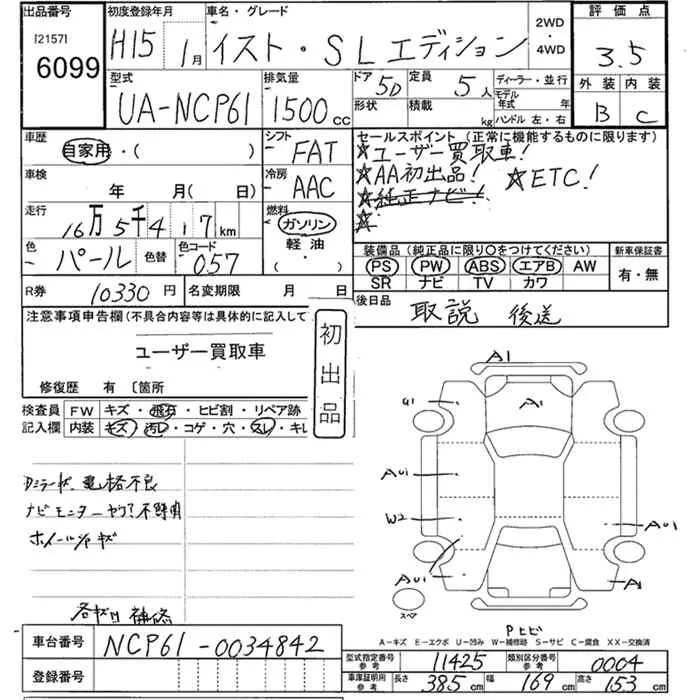 出品番号
[2157]
6099
初度登録年月
H15 1月
車名・グレード
イスト・SLエディション
2WD
・
4WD
評価点
3.5
外装 内装
B C
型式
UA-NCP61
排気量
1500cc
ドア 5D
形状
定員 5人
積載 kg
ディーラー・並行
モデル
年式 年
ハンドル 左・右
車歴
自家用・( )
シフト
FAT
セールスポイント (正常に機能するものに限ります)
☆ユーザー買取車!
☆AA初出品! ☆ETC!
☆純正ナビ!
☆
車検
年 月(日 )
冷房
AAC
走行
16万5千417km
燃料
ガソリン
軽油・
( )
色
パール
色替
色コード
057
装備品(純正品に限り〇をつけてください)
PS PW ABS エアB AW
SR ナビ TV カワ
新車保証書
有・無
R券 10330円
名変期限 月 日
後日品
取説 後送
注意事項申告欄(不具合内容等は具体的に記入して
ユーザー買取車
修復歴 有 〔箇所
初出品
検査員 FW キズ・飛石・ヒビ割・リペア跡
記入欄 内装 キズ・汚レ・コゲ・穴・スレ・キレ
Dミラーキズ、電格不良
ホイールキズ
補修
A1
A1
G1
AU1
W2
AU1
AU1
A1
スペア
Pヒビ
A―キズ E―エクボ U―凹み W―補修跡 S―サビ C―腐食 XX―交換済
車台番号 NCP61-0034842
登録番号
型式指定番号
参考
11425
類別区分番号
参考
0004
車庫証明用
参考
長さ 385cm 幅 169cm 高さ 153cm